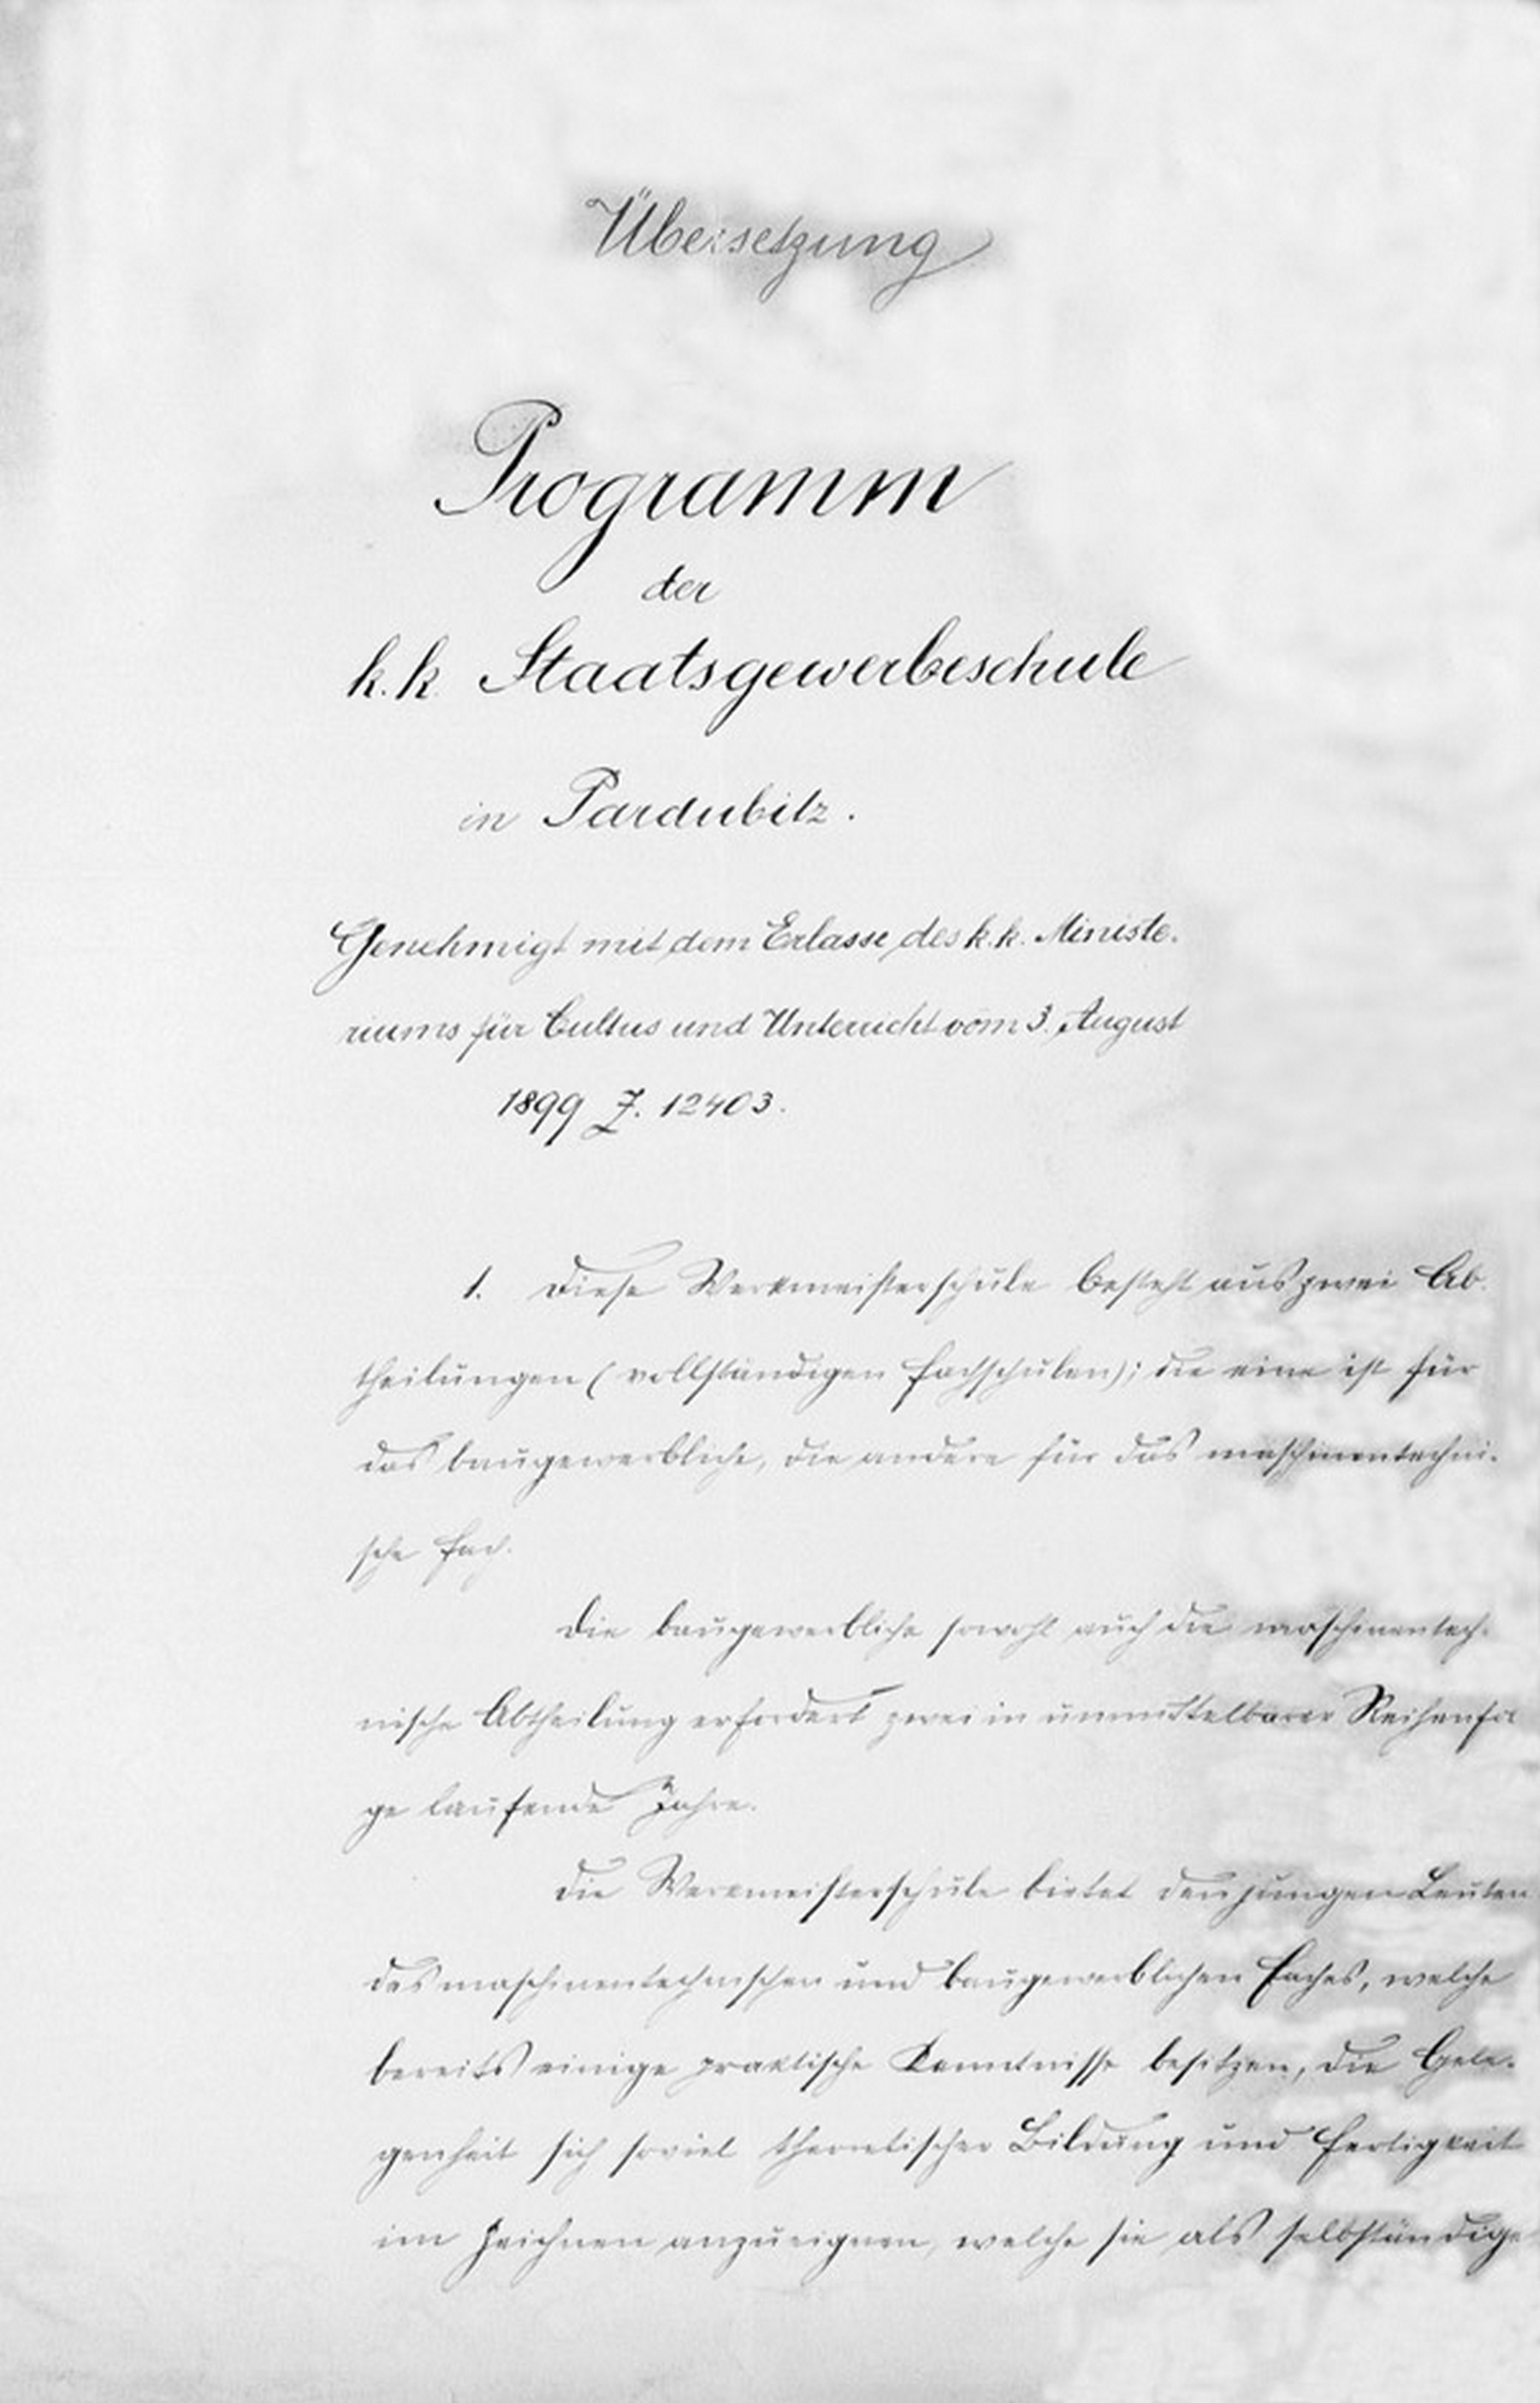 Übersetzung
Programm
der
k.k. Staatsgewerbeschule
in Pardubitz.
Genehmigt mit dem Erlasse des k.k. Ministe-
riums für Cultus und Unterricht vom 3. August
1899 Z. 12403.
1. Diese Werkmeisterschule besteht aus zwei Ab-
theilungen (vollständigen Fachschulen); die eine ist für
das baugewerbliche, die andere für das maschinentechni-
sche Fach.
Die baugewerbliche sowohl auch die maschinentech-
nische Abtheilung erfordert zwei in unmittelbarer Reihenfol
ge laufende Jahre.
Die Werkmeisterschule bietet den jungen Leuten
des maschinentechnischen und baugewerblichen Faches, welche
bereits einige praktische Kenntnisse besitzen, die Gele-
genheit sich soviel theoretischer Bildung und Fertigkeit
im Zeichnen anzueignen, welche sie als selbständige